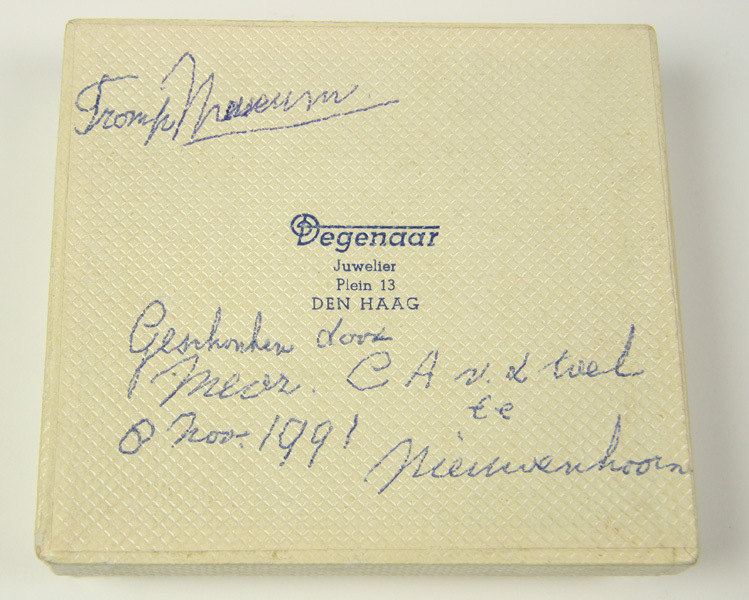 Tromp Museum
Degenaar
Juwelier
Plein 13
DEN HAAG
Geschonken door
Mevr. C A v. d Wel
te
8 Nov. 1991
Nieuwenhoorn